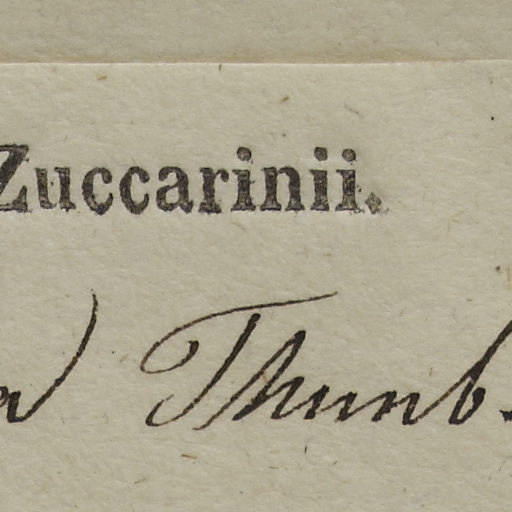 Zuccarinii.
a Thunb.